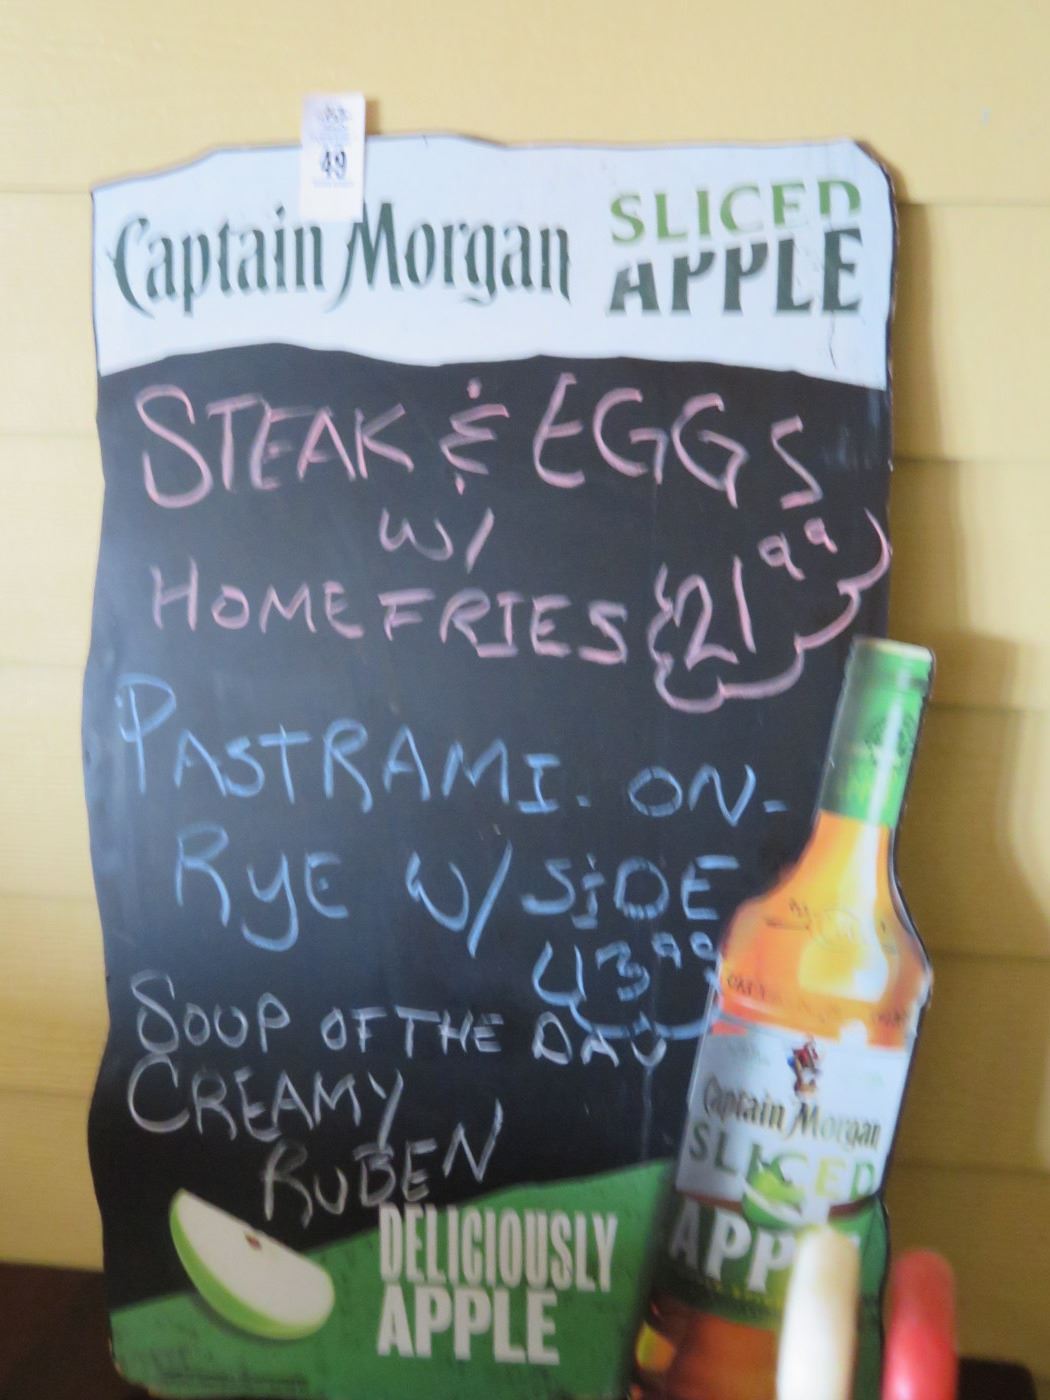 49
Captain Morgan SLICED
APPLE
STEAK & EGGS
W/
HOMEFRIES {21 99}
PASTRAMI - ON -
RYE W/ SIDE
SOUP OF THE DAY
CREAMY
RUBEN
Captain Morgan
SLICED
DELICIOUSLY
APPLE